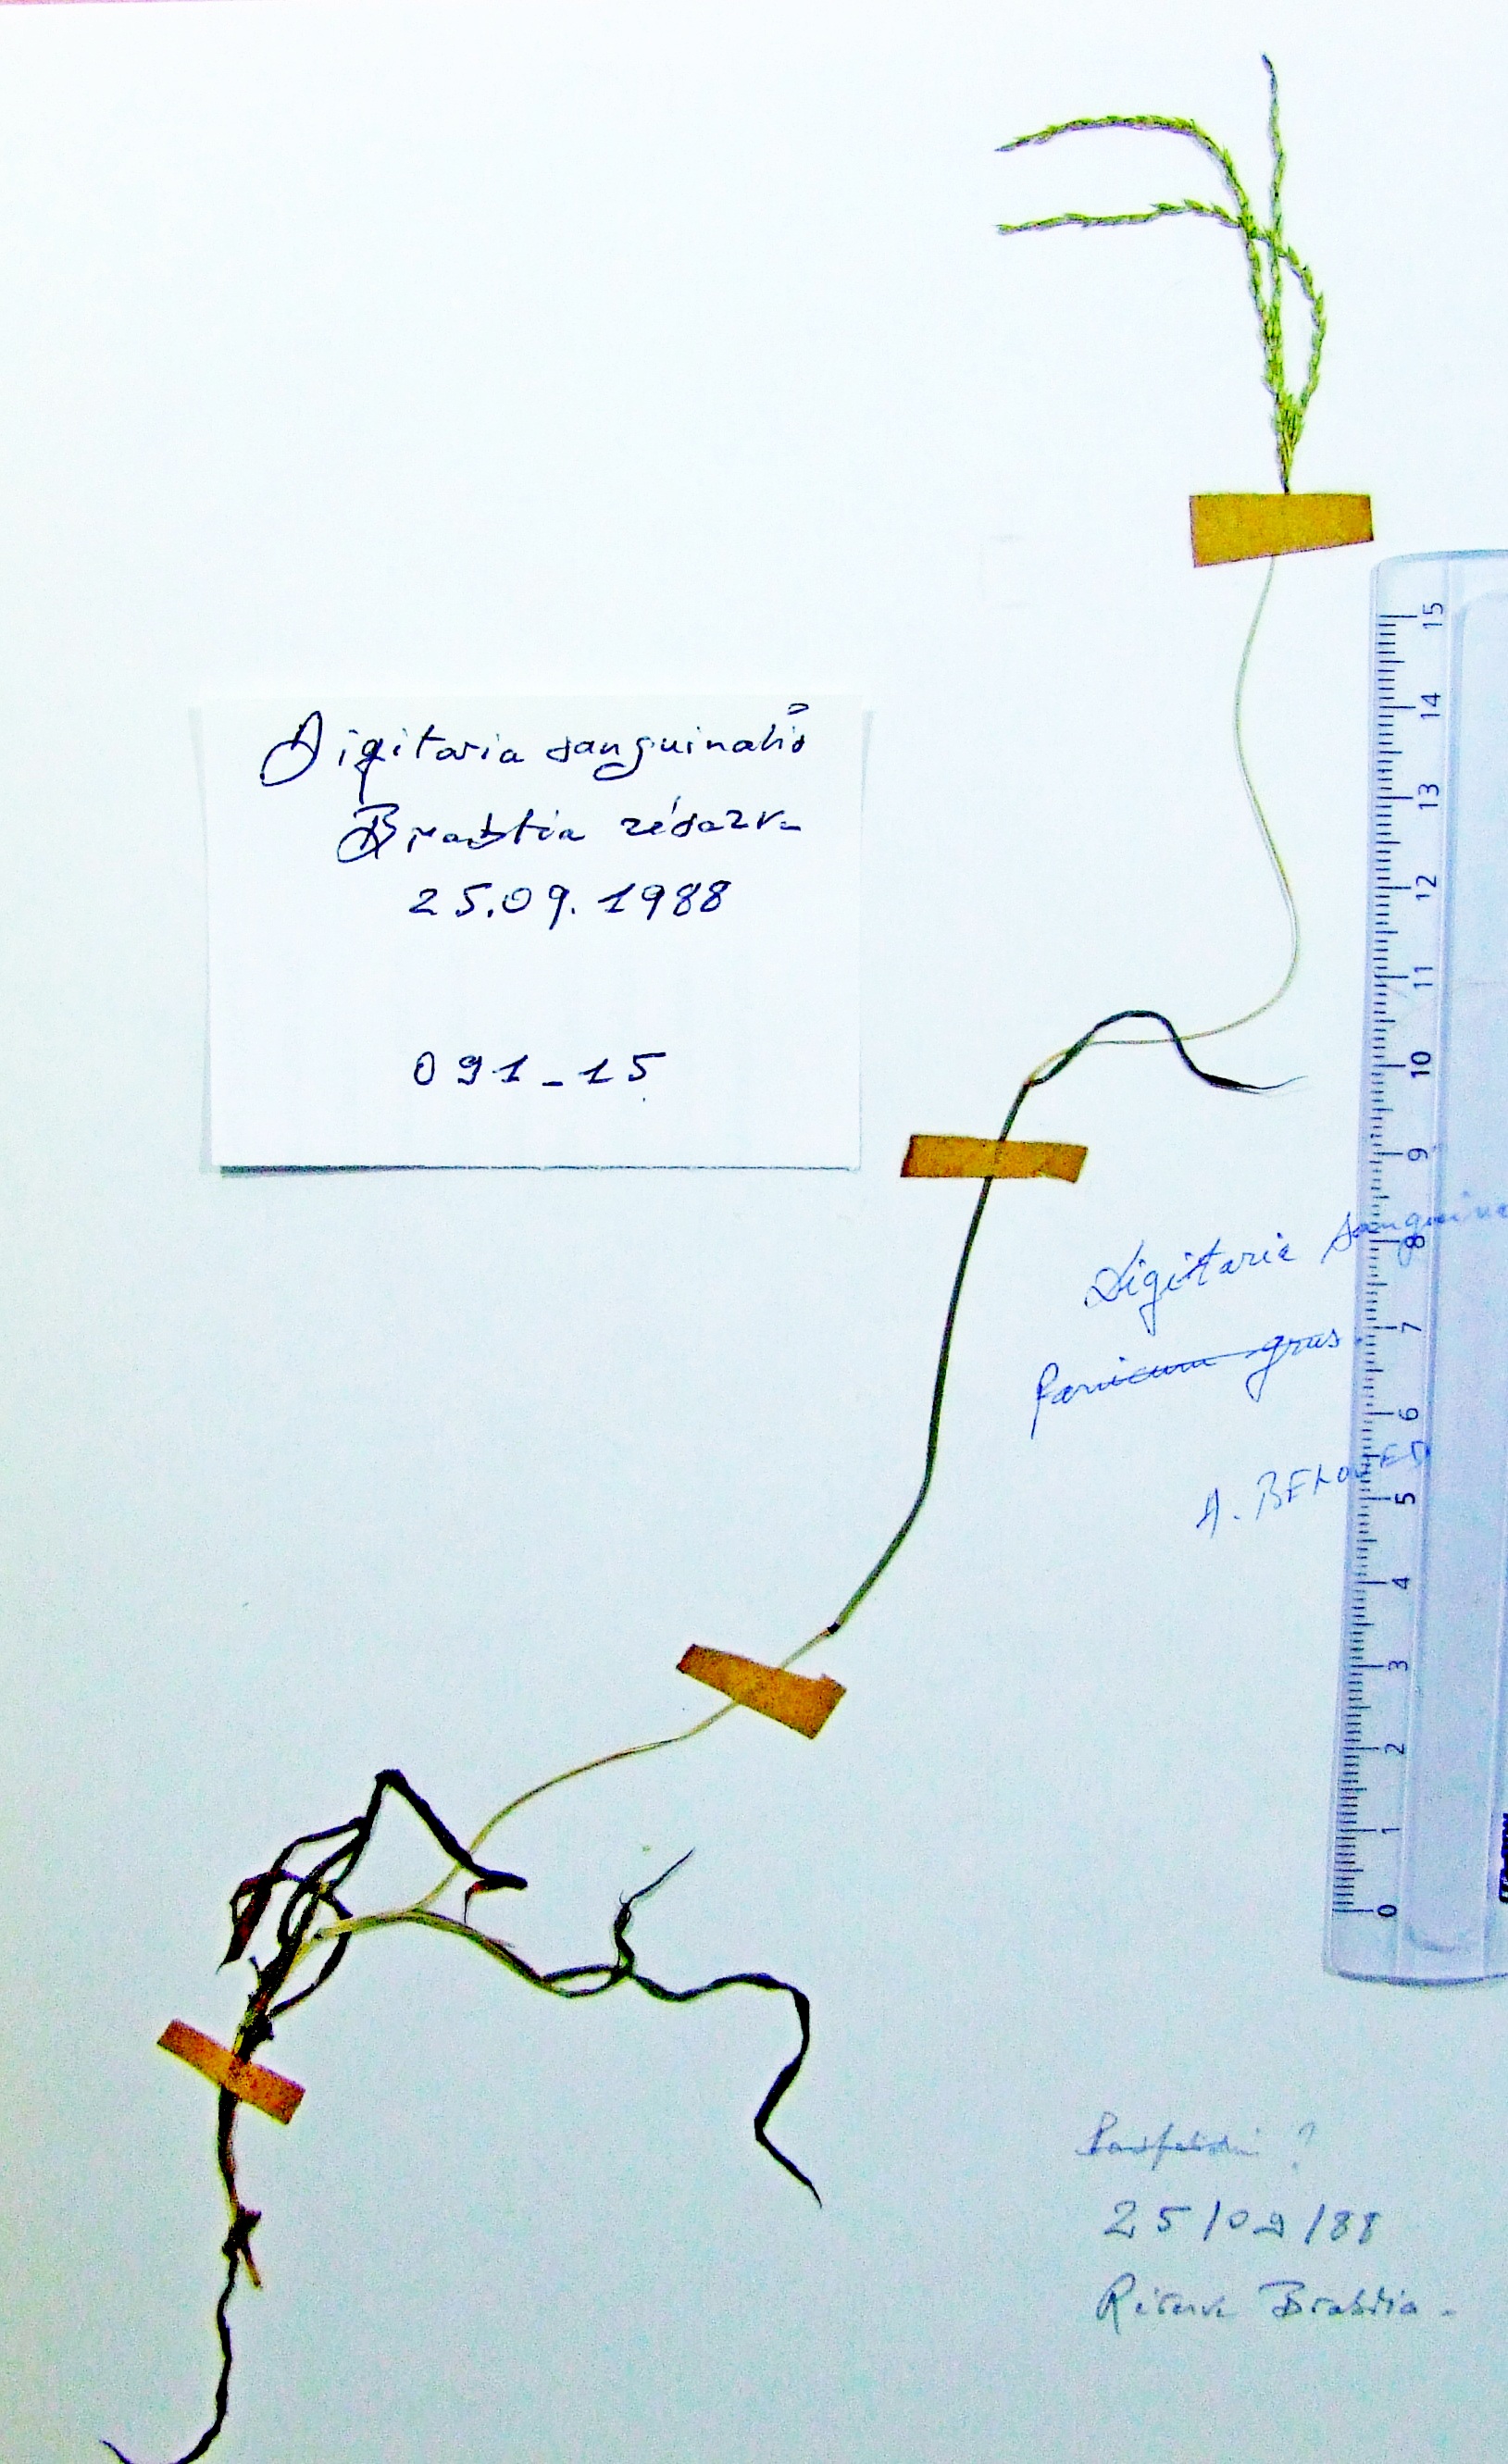 Digitaria sanguinalis
Brabtia réserve
25.09.1988
091-15
15
14
13
12
11
10
9
8
7
6
5
4
3
2
1
0
Digitaria sanguina
Panicum grus
A.
?
25/09/88
Réserve Brabtia